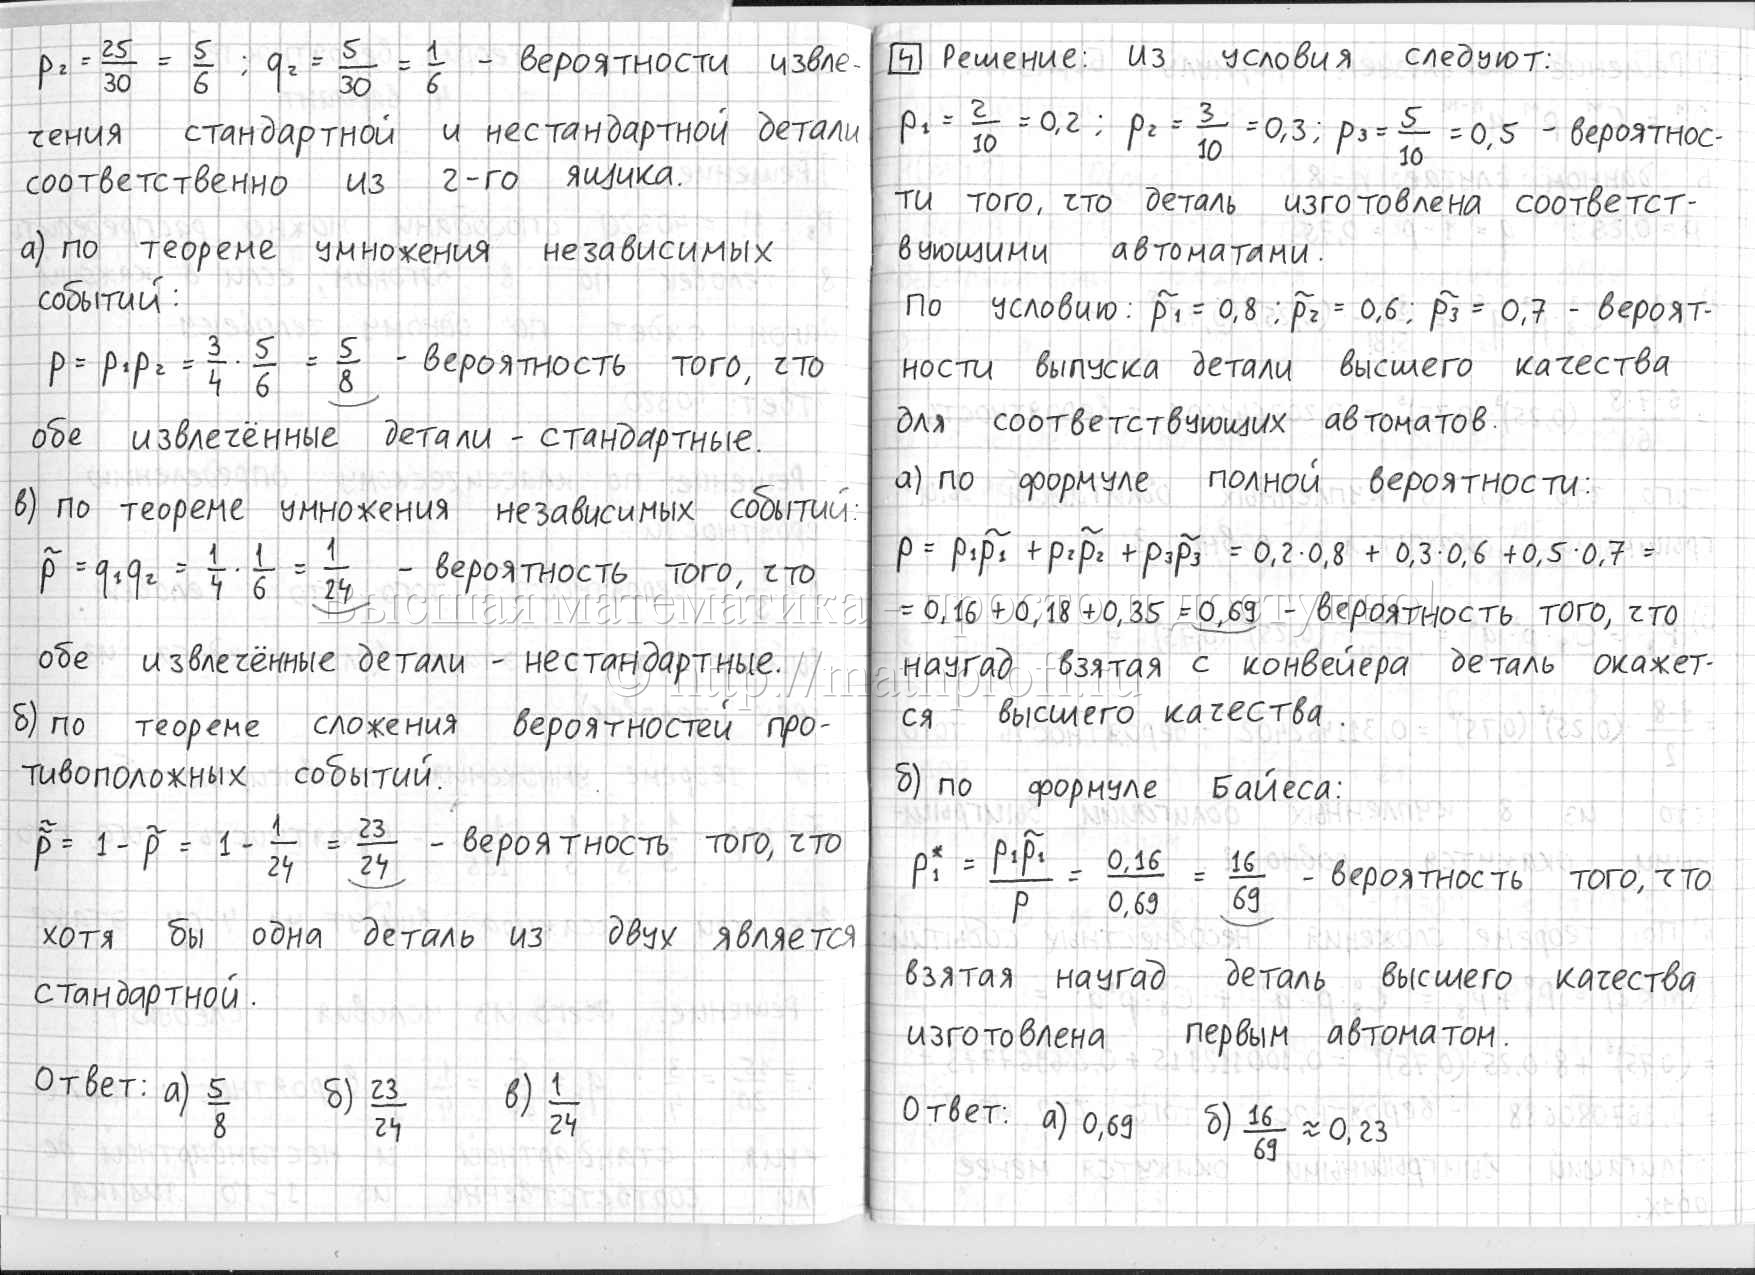 p₂ = 25/30 = 5/6 ; q₂ = 5/30 = 1/6 - вероятности извле-
чения стандартной и нестандартной детали
соответственно из 2-го ящика.
а) по теореме умножения независимых
событий:
p = p₁p₂ = 3/4 · 5/6 = 5/8 - вероятность того, что
обе извлечённые детали - стандартные.
в) по теореме умножения независимых событий:
p̃ = q₁q₂ = 1/4 · 1/6 = 1/24 - вероятность того, что
обе извлечённые детали - нестандартные.
б) по теореме сложения вероятностей про-
тивоположных событий.
p̃̃ = 1 - p̃ = 1 - 1/24 = 23/24 - вероятность того, что
хотя бы одна деталь из двух является
стандартной.
Ответ: а) 5/8 б) 23/24 в) 1/24
4 Решение: Из условия следуют:
p₁ = 2/10 = 0,2 ; p₂ = 3/10 = 0,3 ; p₃ = 5/10 = 0,5 - вероятнос-
ти того, что деталь изготовлена соответст-
вующими автоматами.
По условию: p̃₁ = 0,8 ; p̃₂ = 0,6 ; p̃₃ = 0,7 - вероят-
ности выпуска детали высшего качества
для соответствующих автоматов.
а) по формуле полной вероятности:
p = p₁p̃₁ + p₂p̃₂ + p₃p̃₃ = 0,2·0,8 + 0,3·0,6 + 0,5·0,7 =
= 0,16 + 0,18 + 0,35 = 0,69 - вероятность того, что
наугад взятая с конвейера деталь окажет-
ся высшего качества.
б) по формуле Байеса:
p₁* = p₁p̃₁/p = 0,16/0,69 = 16/69 - вероятность того, что
взятая наугад деталь высшего качества
изготовлена первым автоматом.
Ответ: а) 0,69 б) 16/69 ≈ 0,23
Высшая математика – просто и доступно!
© http://mathprofi.ru